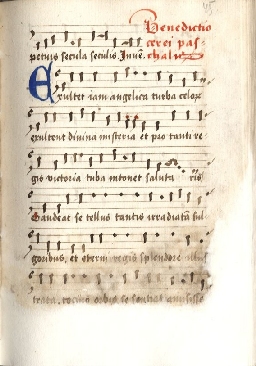 Benedictio
cerei pas-
chalis
petuis secula seculis. Juve.
Exultet iam angelica turba celor
exultent divina misteria et pro tanti re
gis victoria tuba intonet saluta ris
Gaudeat se tellus tantis irradiata ful
goribus, et eterni regis splendore
trata, totius orbis se sentiat amisisse